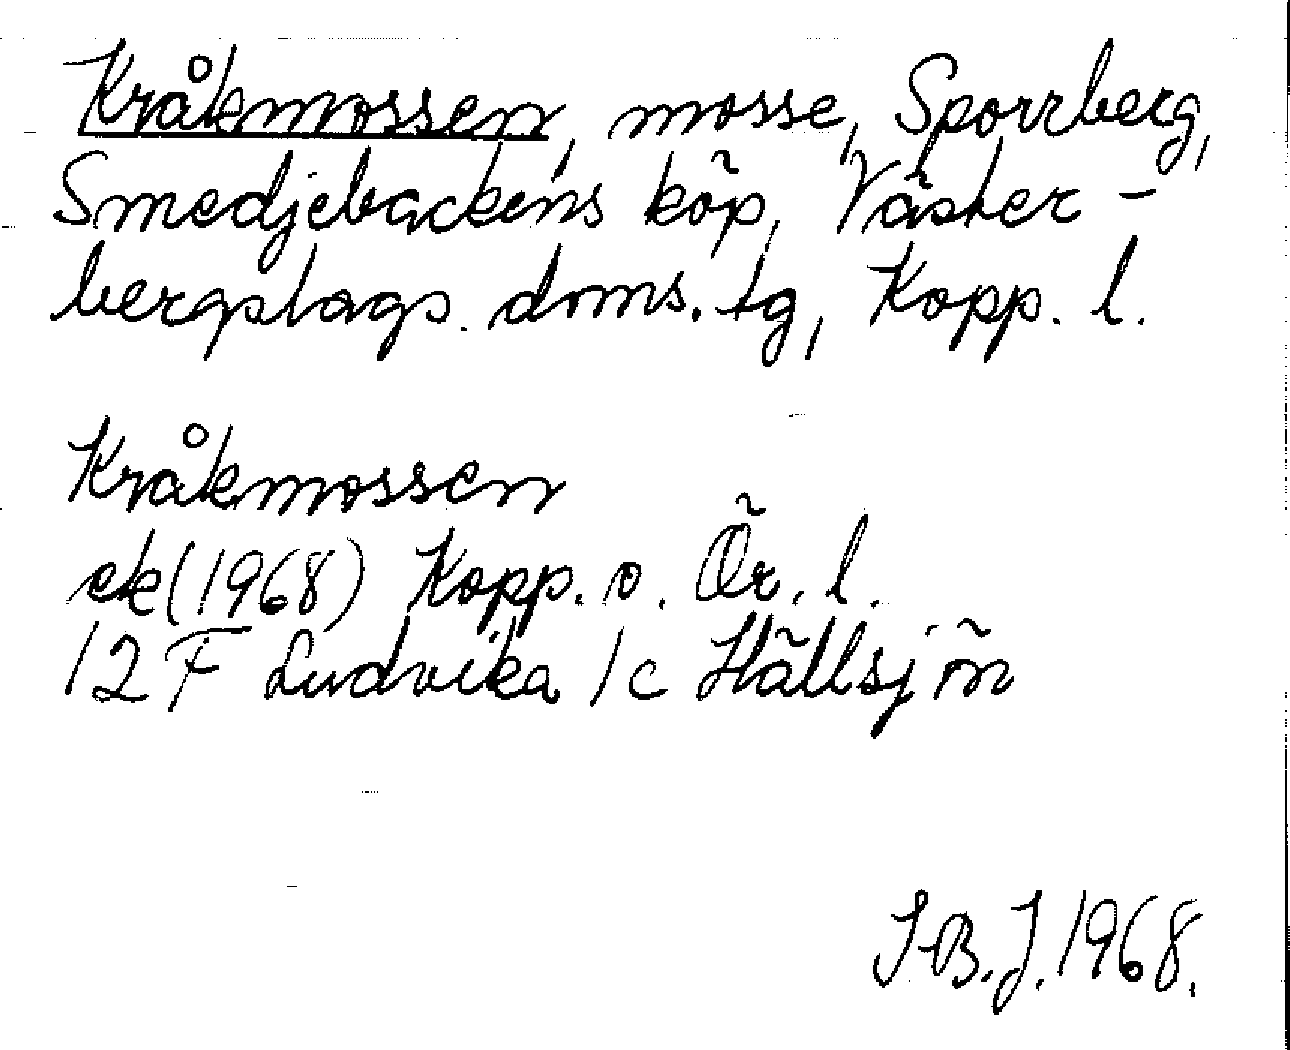 Kråkmossen, mosse, Sporrberg,
Smedjebackens köp, Väster-
bergslags doms.tg, Kopp. l.
Kråkmossen
ek(1968) Kopp. o. Ör. l.
12F Ludvika 1c Hällsjön
I.B.J. 1968.